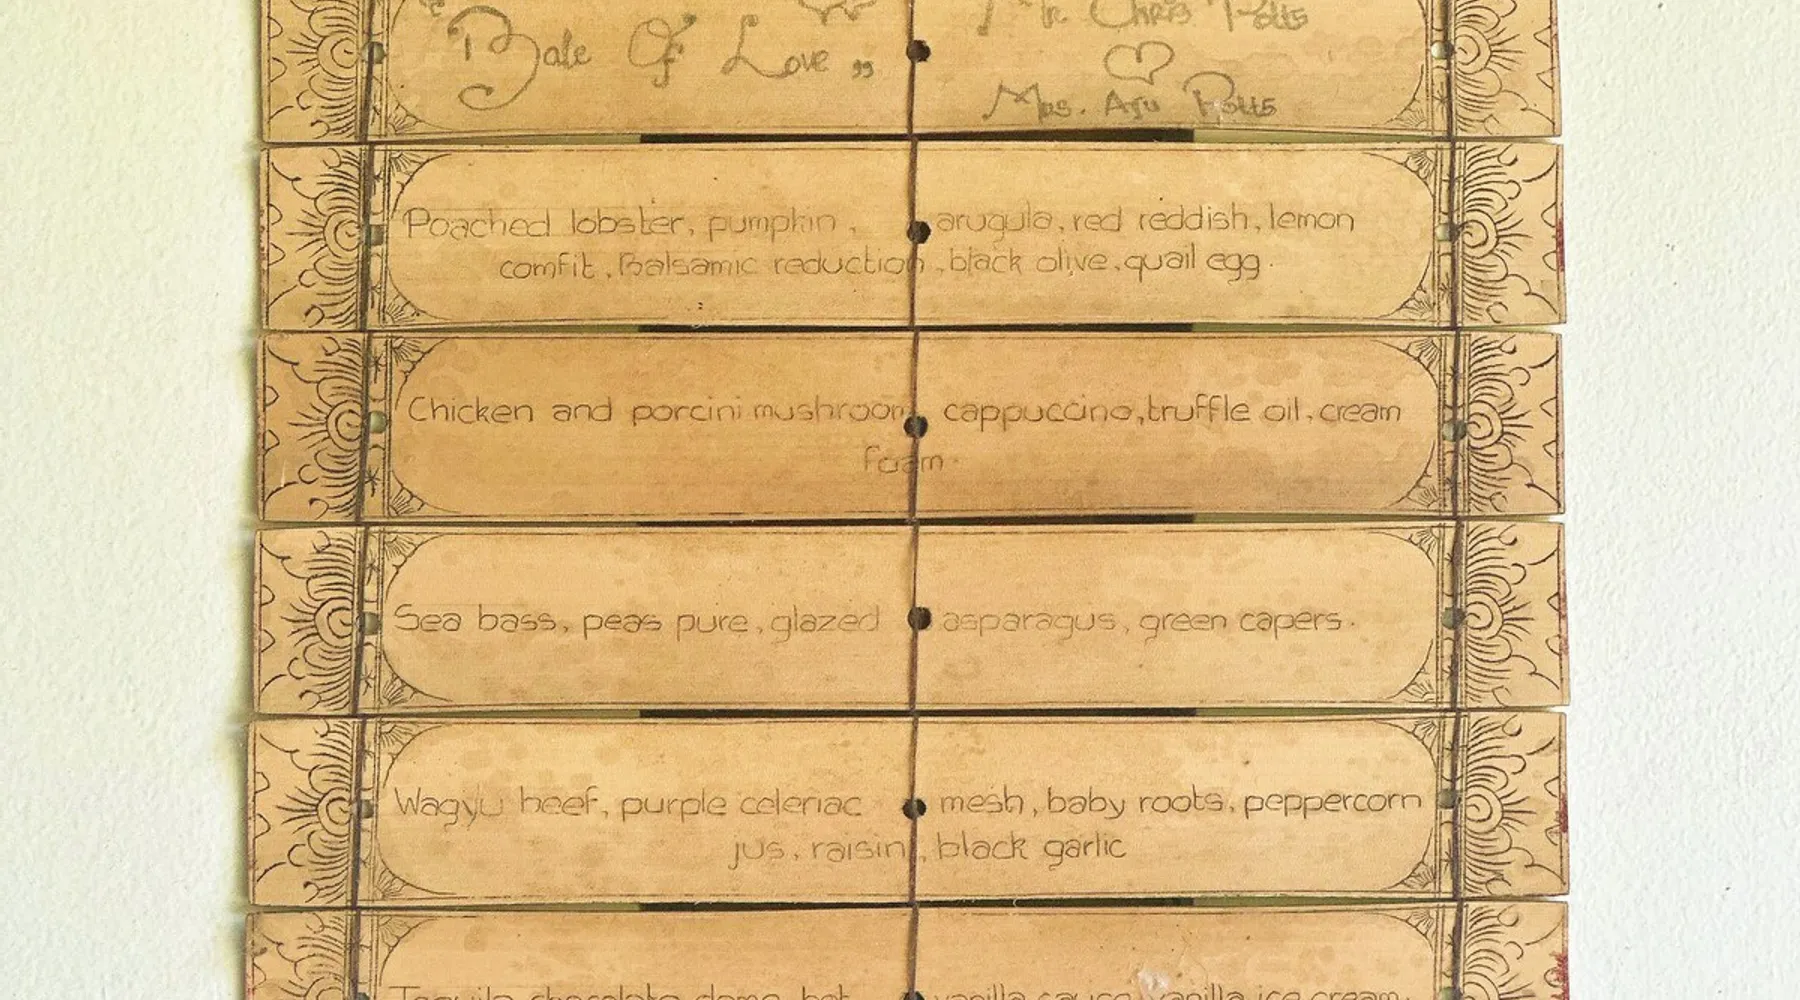 “ Bale Of Love ”
Mr. Chris Potts
Mrs. Ayu Potts
Poached lobster, pumpkin, arugula, red reddish, lemon
comfit, Balsamic reduction, black olive, quail egg.
Chicken and porcini mushroom, cappuccino, truffle oil, cream
foam.
Sea bass, peas pure, glazed asparagus, green capers.
Wagyu beef, purple celeriac mesh, baby roots, peppercorn
jus, raisin, black garlic
Tequila chocolate dome, hot vanilla sauce, vanilla ice cream.